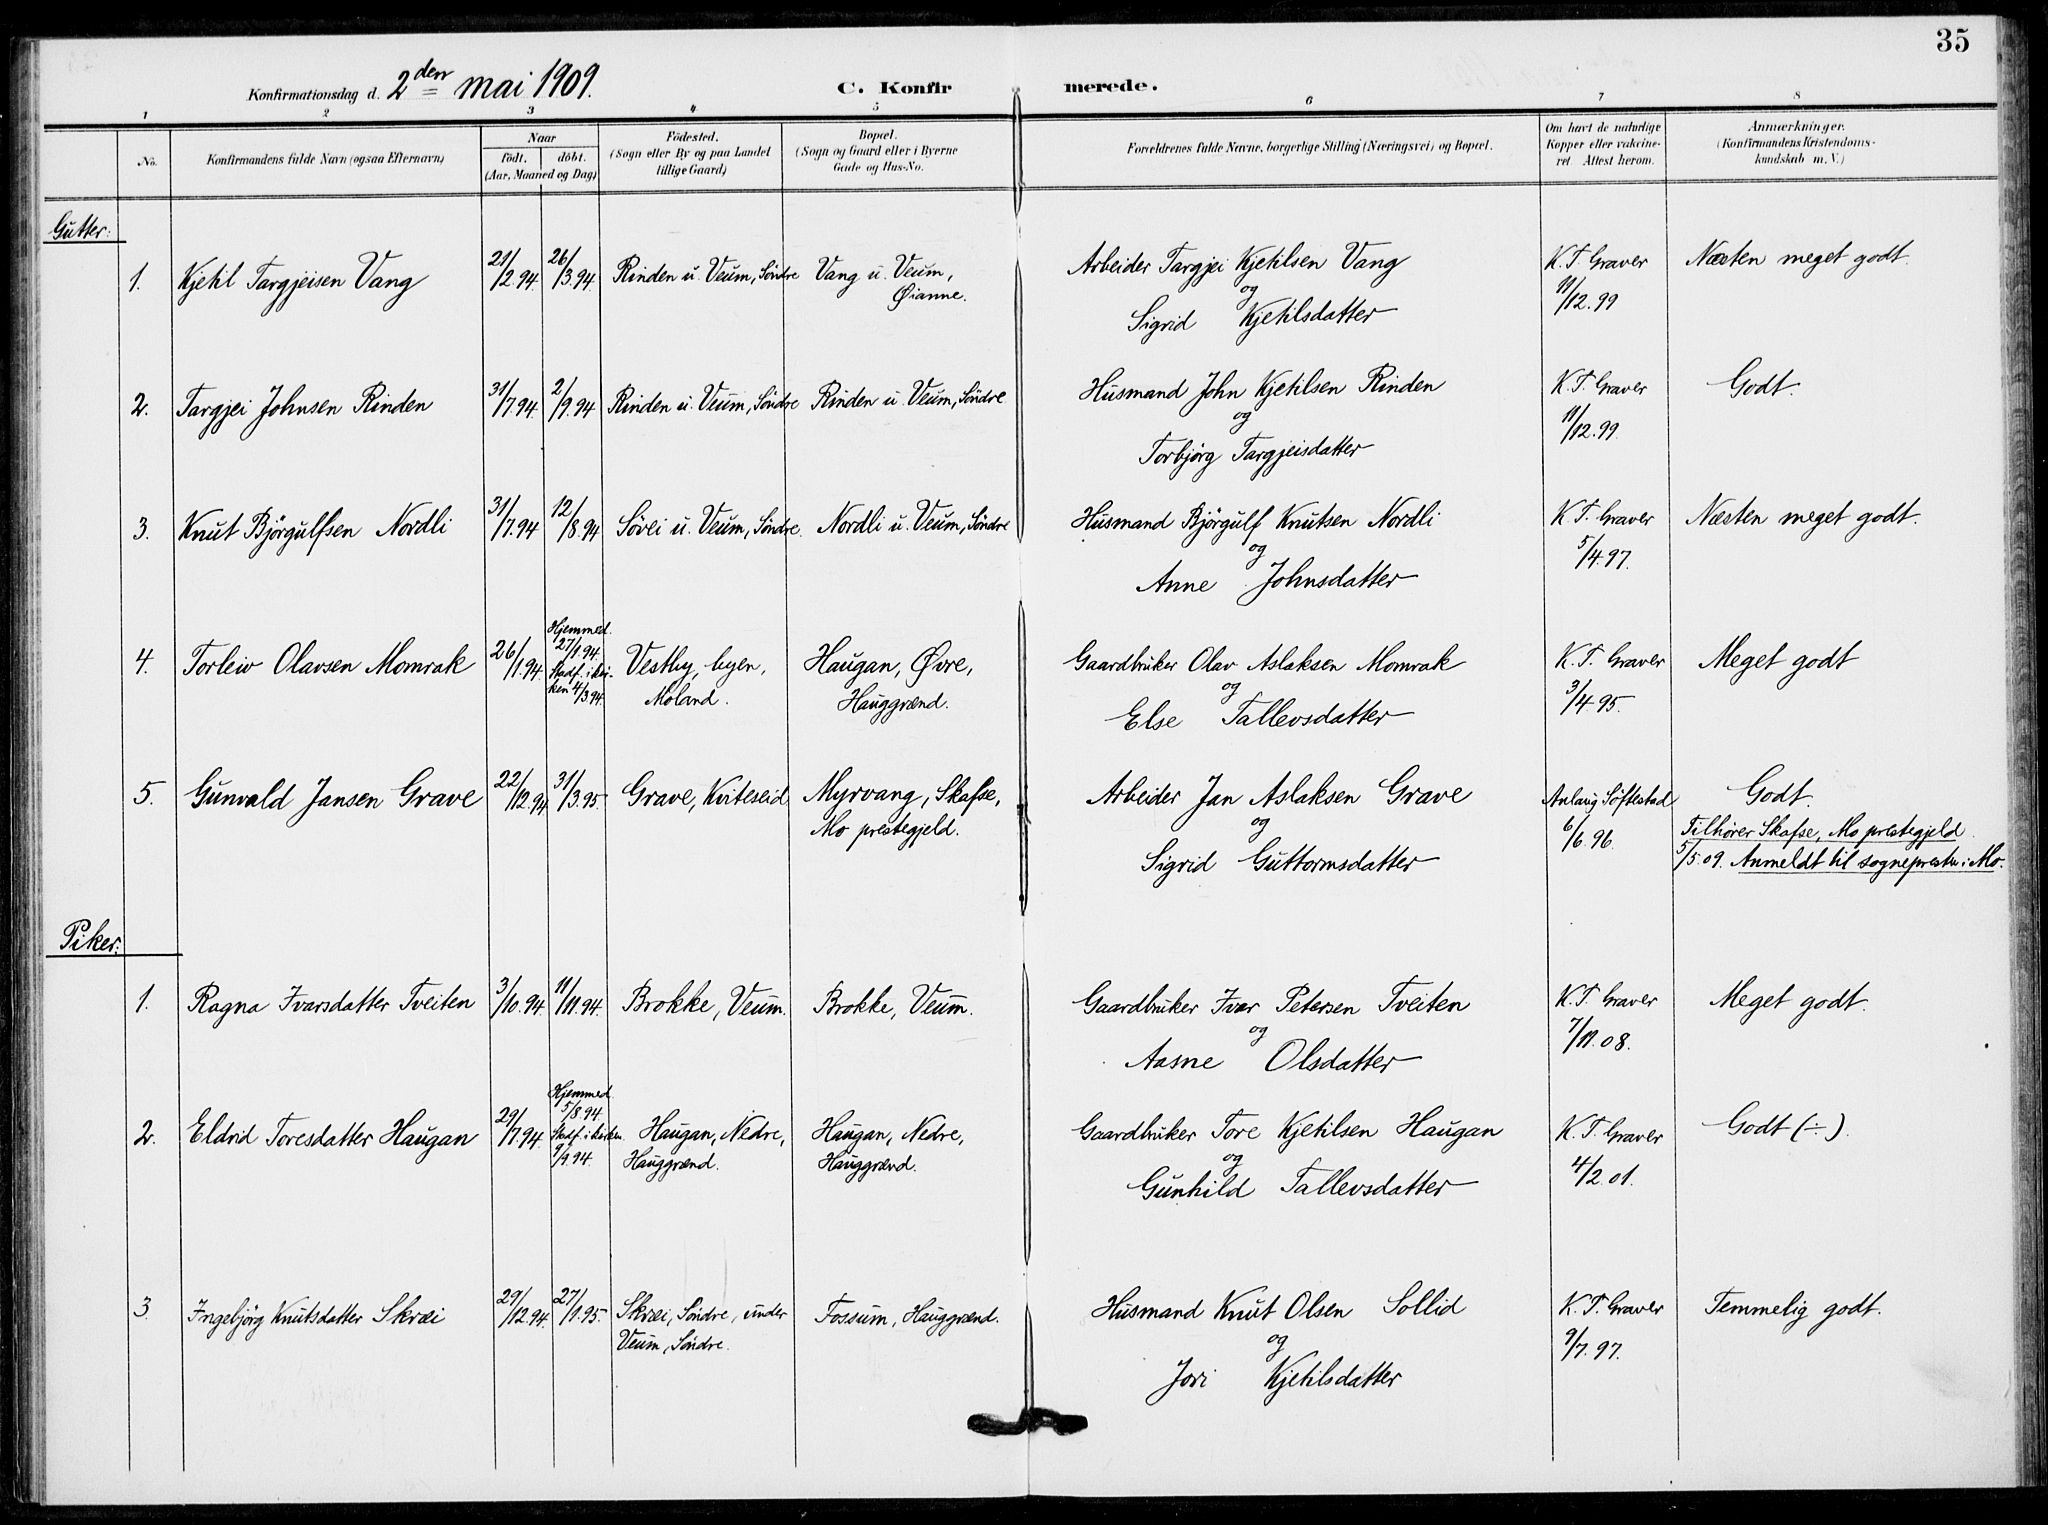 35
Konfirmationsdag d. 2den mai 1909.
C. Konfirmerede.
1 2 3 4 5 6 7 8
No.
Konfirmandens fulde Navn (ogsaa Efternavn)
Naar
födt. döbt.
(Aar, Maaned og Dag)
Födested.
(Sogn eller By og paa Landet
tillige Gaard)
Bopæl.
(Sogn og Gaard eller i Byerne
Gade og Hus-No.
Forældrenes fulde Navne, borgerlige Stilling (Næringsvei) og Bopæl.
Om havt de naturlige
Kopper eller vakcine-
ret. Attest herom.
Anmærkninger.
(Konfirmandens Kristendoms-
kundskab m. V.)
Gutter:
1. Kjetil Targjeisen Vang 21/2.94. 26/3.94. Rinden u. Veum, Söndre Vang u. Veum, Arbeider Targjei Kjetilsen Vang K. T. Graver Næsten meget godt.
Øianne. og 11/12.99
Sigrid Kjetilsdatter
2. Targjei Johnsen Rinden 31/7.94. 2/9.94 Rinden u. Veum, Söndre Rinden u. Veum, Söndre Husmand John Kjetilsen Rinden K. T. Graver Godt.
og 11/12.99.
Torbjörg Targjeisdatter
3. Knut Björgulfsen Nordli 31/7.94 12/8.94 Søvei u. Veum, Söndre. Nordli u. Veum, Söndre Husmand Björgulf Knutsen Nordli K. T. Graver Næsten meget godt.
og 5/4.97.
Anne Johnsdatter
4. Torleiv Olavsen Momrak 26/1.94. Hjemmed.
27/1.94.
Stadf. i kir-
ken 4/3.94. Vestby, byen, Haugan, Øvre, Gaardbruker Olav Aslaksen Momrak K. T. Graver Meget godt
Moland. Hauggrænd. og 3/4.95.
Else Tallevsdatter
5. Gunvald Jansen Grave 22/12.94 31/3.95. Grave, Kviteseid Myrvang, Skafse, Arbeider Jan Aslaksen Grave Anlaug Söftestad Godt.
Mo prestegjeld. og 6/6.96. Tilhører Skafse, Mo prestegjeld.
Sigrid Guttormsdatter 5/5.09. Anmeldt til sogneprester i Mo.
Piker:
1. Ragna Ivarsdatter Tveiten 3/10.94. 11/11.94. Brokke, Veum. Brokke, Veum. Gaardbruker Ivar Petersen Tveiten K. T. Graver Meget godt.
og 7/11.08.
Aasne Olsdatter
2. Eldrid Toresdatter Haugan 29/7.94. Hjemmed.
5/8.94.
Stadf. i kirken
9/9.94. Haugan, Nedre, Haugan, Nedre, Gaardbruker Tore Kjetilsen Haugan K. T. Graver Godt (÷).
Hauggrænd. Hauggrænd. og 4/2.01.
Gunhild Tallevsdatter
3. Ingebjörg Knutsdatter Skræi 29/12.94. 27/1.95. Skræi, Söndre, under Fossum, Hauggrænd. Husmand Knut Olsen Sollid K. T. Graver Temmelig godt.
Veum, Söndre. og 9/7.97.
Jori Kjetilsdatter